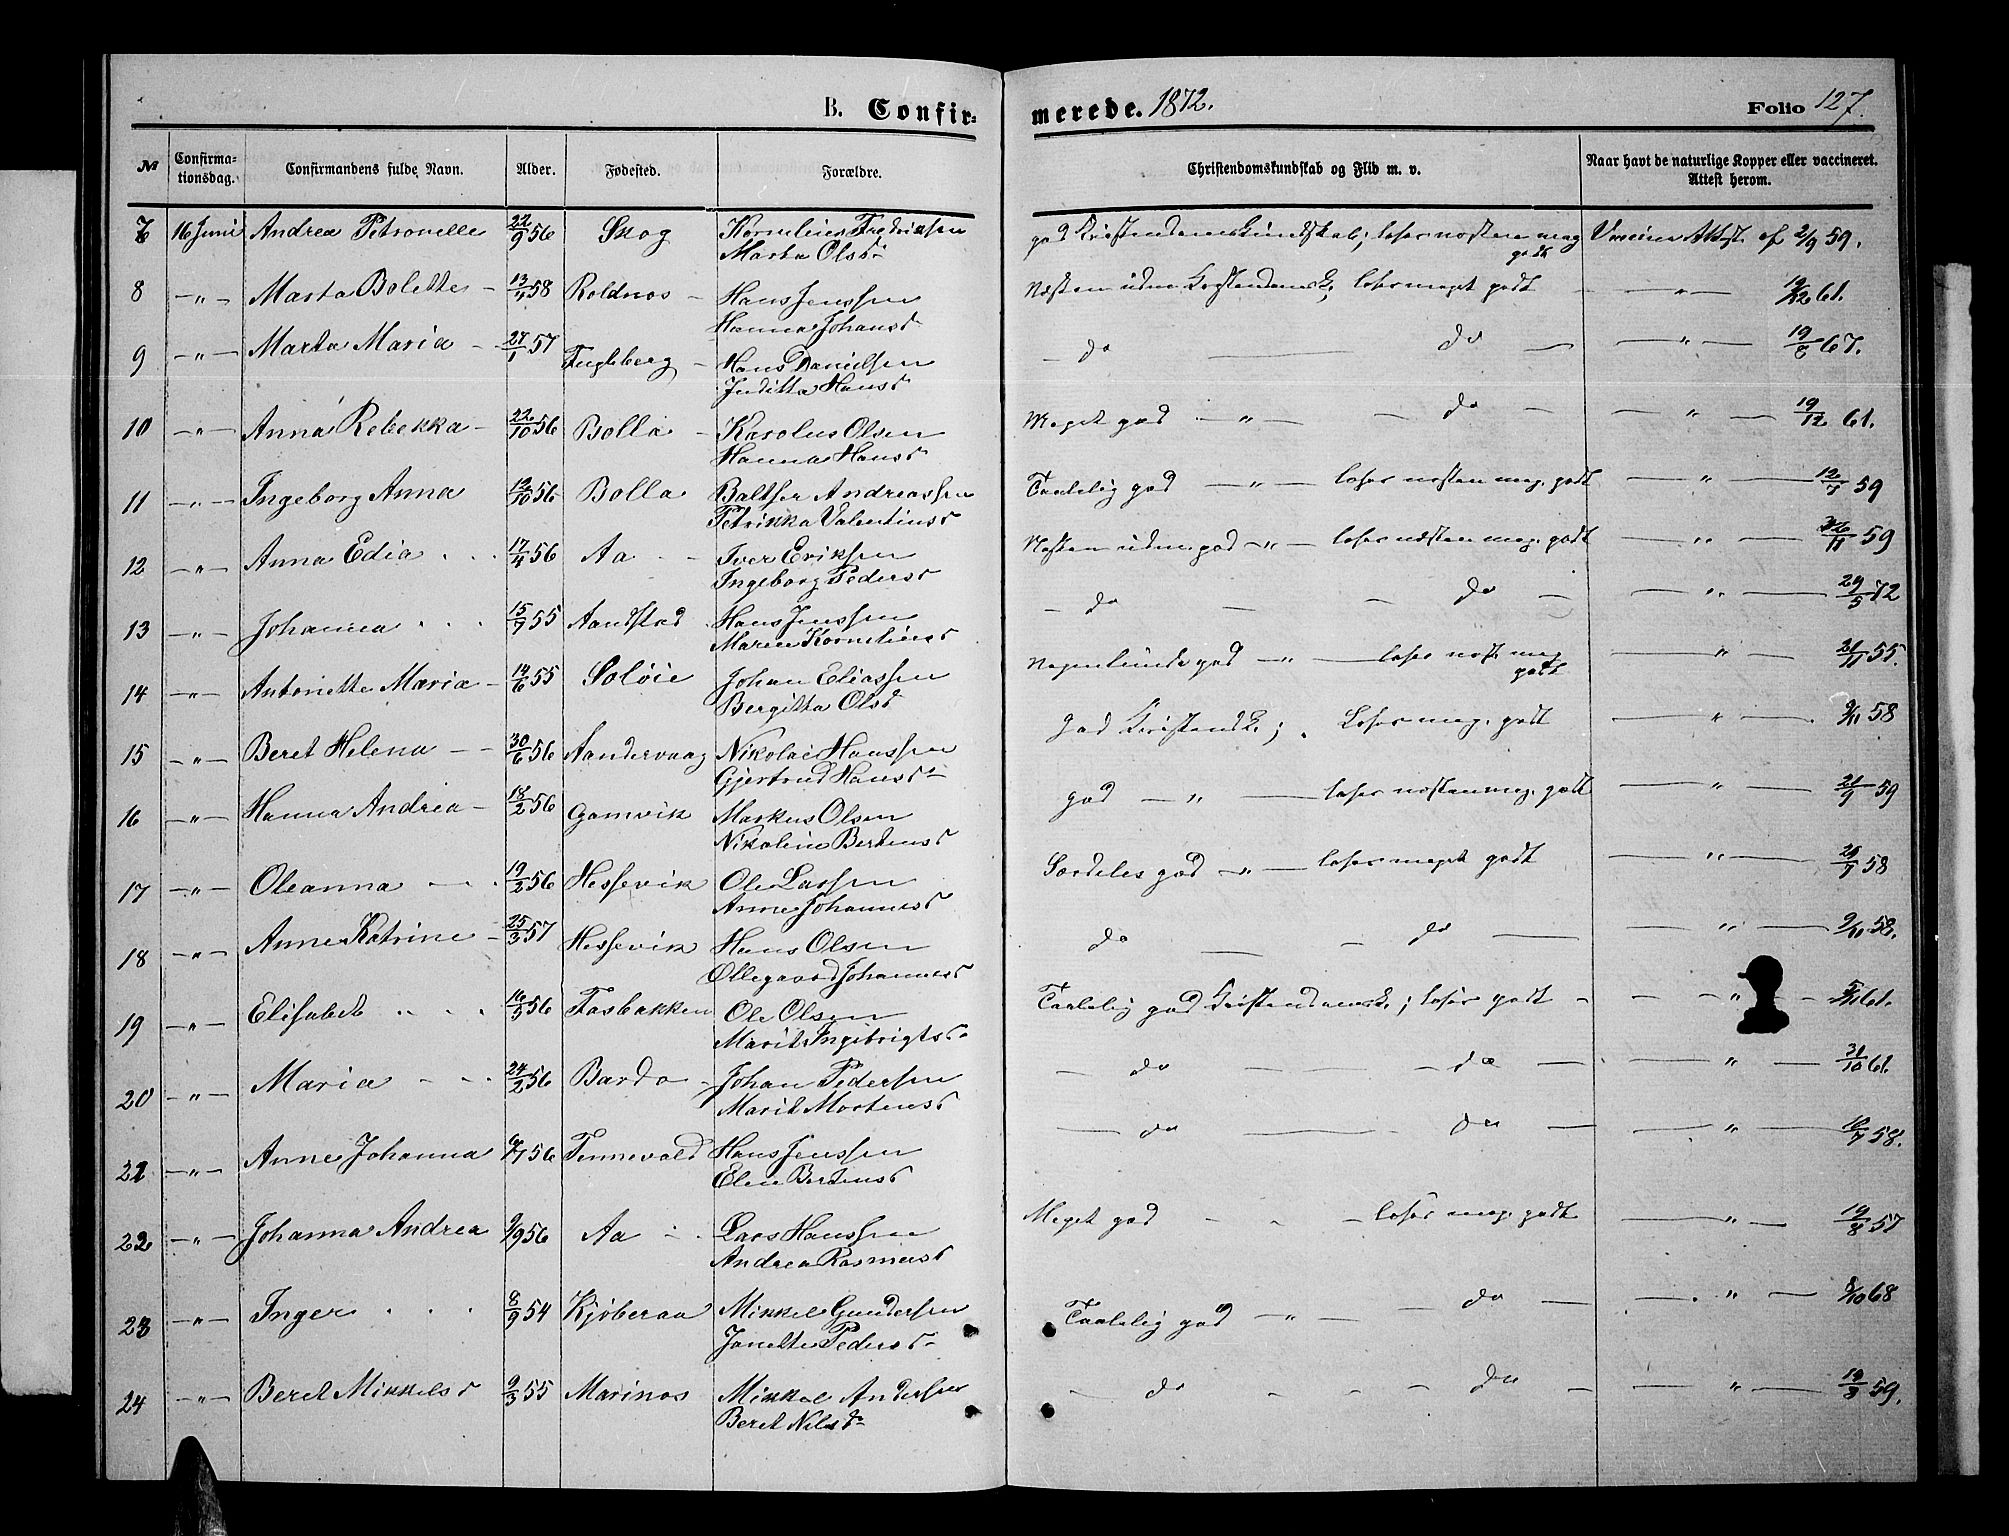 B. Confirmerede. 1872. Folio 127.
№ Confirmationsdag. Confirmandens fulde Navn. Alder. Fødested. Forældre. Christendomskundskab og Flid m. v. Naar havt de naturlige Kopper eller vaccineret. Attest herom.
7 16 Juni Andrea Petronelle 22/9 56 Skog Kornelius Fredriksen god Kristendomskundskab; læser næsten meg Vaccine Attest af 2/9 59.
Marta Olsd. godt
8 -"- Marta Bolette - 13/4 58 Roldnes - Hans Jenssen Næsten uden læser meget godt -"- 19/12 61.
Hanna Johansd
9 -"- Marta Maria - 27/1 57 Fugleberg - Hans Danielsen - do - do - -"- 19/8 67.
Juditta Hansd
10 -"- Anna Rebekka - 22/10 56 Bolla - Karolus Olsen Meget god -"- - do - -"- 19/12 61.
Hanna Hansd
11 -"- Ingeborg Anna 12/10 56 Bolla Baltser Andreassen Taalelig god -"- læser næsten meg. godt -"- 12/7 59
Petrikka Valentinsd
12 -"- Anna Edia 17/4 56 Aa - Iver Eriksen Næsten uden god -"- læser næsten meg. godt -"- 59
Ingeborg Pedersd
13 -"- Johanna 15/7 55 Aandstad Hans Jenssen - do - do - -"- 29/5 72
Maren Kornelinsd
14 -"- Antoriette Maria - 14/6 55 Soløie Johan Eliassen Nogenlunde god -"- læser næst. meg -"- 21/11 55.
Bergitta Olsd godt
15 -"- Beret Helena - 30/6 56 Aandervaag Nikolai Hanssen God Kristendsk; Læser meg. godt -"- 9/11 58
Gjertrud Hansd
16 -"- Hanna Andrea - 18/2 56 Gamvik Markus Olsen god -"- læser næsten meg. godt -"- 21/9 59
Nikoline Bertensd
17 -"- Oleanna - 19/2 56 Hessevik Ole Larsen Særdeles god -"- læser meget godt -"- 58
Anne Johannesd
18 -"- Anne Katrine - 25/3 57 Hessevik Hans Olsen do - do - -"- 9/11 58.
Ollegaard Johannesd
19 -"- Elisabet 16/5 56 Fosbakken Ole Olsen Taalelig god Kristendomsk; læser godt - -"- 61.
Marit Ingebrigtsd
20 -"- Maria - 24/2 56 Bardo - Johan Pedersen - do - do - -"- 31/10 61.
Marit Mortensd
21 -"- Anne Johanna 6/7 56 Tennevold Hans Jenssen - do - do - -"- 16/7 58.
Elen Bertensd
22 -"- Johanna Andrea 9/9 56 Aa Lars Hanssen Meget god - læser meg. godt -"- 19/8 57
Andrea Rasmusd
23 -"- Inger 8/9 54 Kjøberaa Mikkel Gundersen Taalelig god -"- - do - -"- 8/10 68
Janette Pedersd
24 -"- Beret Mikkelsd 9/3 55 Marinos Mikkel Andersen - do - do - -"- 19/3 59.
Beret Nilsd